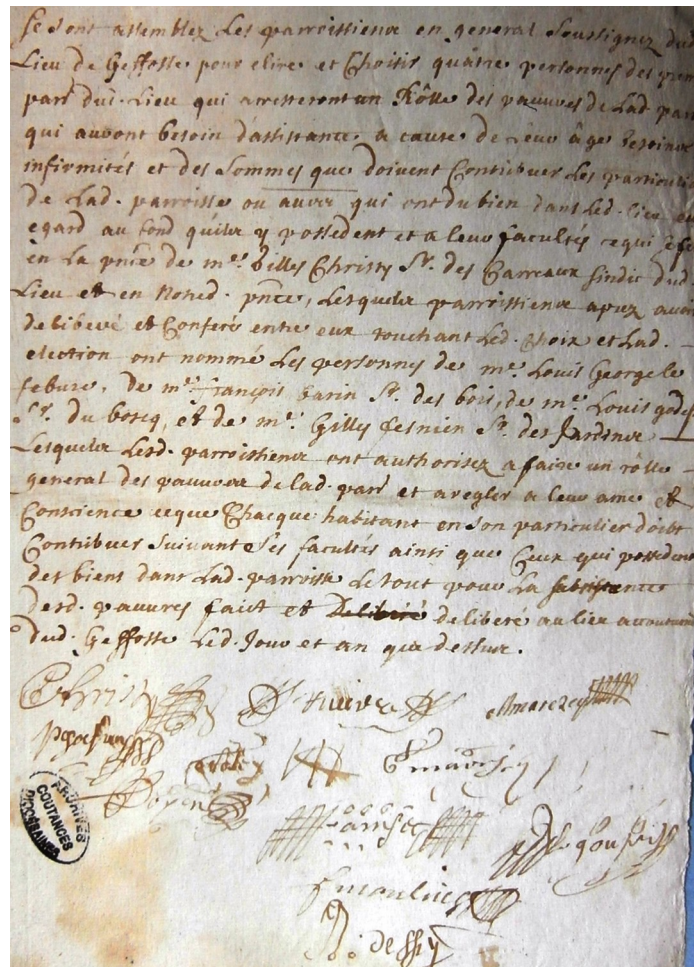 se sont assemblez Les parroissiens en general soussignez dud
Lieu de Geffosse pour elire et Choisir quatre personnes des
parr dud. Lieu qui arresteront un Rôlle des pauvres de Lad. parr
qui auront besoin d'assistance a cause de leur âge
infirmités et des Sommes que doivent Contribuer Les particuli
de Lad. parroisse ou autre qui ont du bien dans Led. lieu
egard au fond qu'ils y possedent et a leur facultés cequi
en La pnce de me. Gilles Christy Sr. des Carreaux sindic dud.
Lieu et en Nosred. pnce, Lesquels parroissiens apres avoir
deliberé et Conferé entre eux touchant Led. choix et Lad.
election ont nommé Les personnes de me. Louis George le
febure, de me. françois Varin Sr. des bois, de me. Louis
Sr. du boscq, et de me. Gilles Sr. des Jardins
Lesquels Lesd. parroissiens ont authorisez a faire un rôlle
general des pauvres de lad. parr et a regler a leur ame et
Conscience ceque Chacque habitant en son particulier doibt
Contribuer suivant ses facultés ainsi que Ceux qui possedent
des biens dans Lad. parroisse Le tout pour La subsistance
desd. pauvres faict et deliberé au lieu accoutumé
dud. Geffosse Led. Jour et an que dessus.
Christy
ARCHIVES
COUTANCES
DIOCESAINES